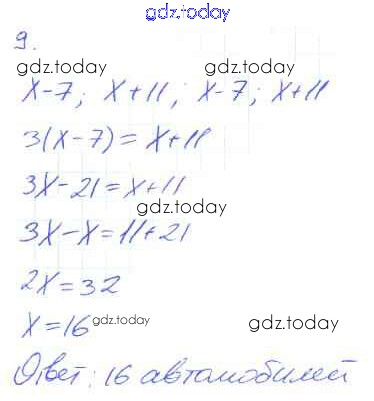 gdz.today
9.
gdz.today gdz.today
x-7; x+11; x-7; x+11
3(x-7)=x+11
3x-21=x+11
gdz.today
3x-x=11+21
2x=32
x=16 gdz.today gdz.today
Ответ: 16 автомобилей